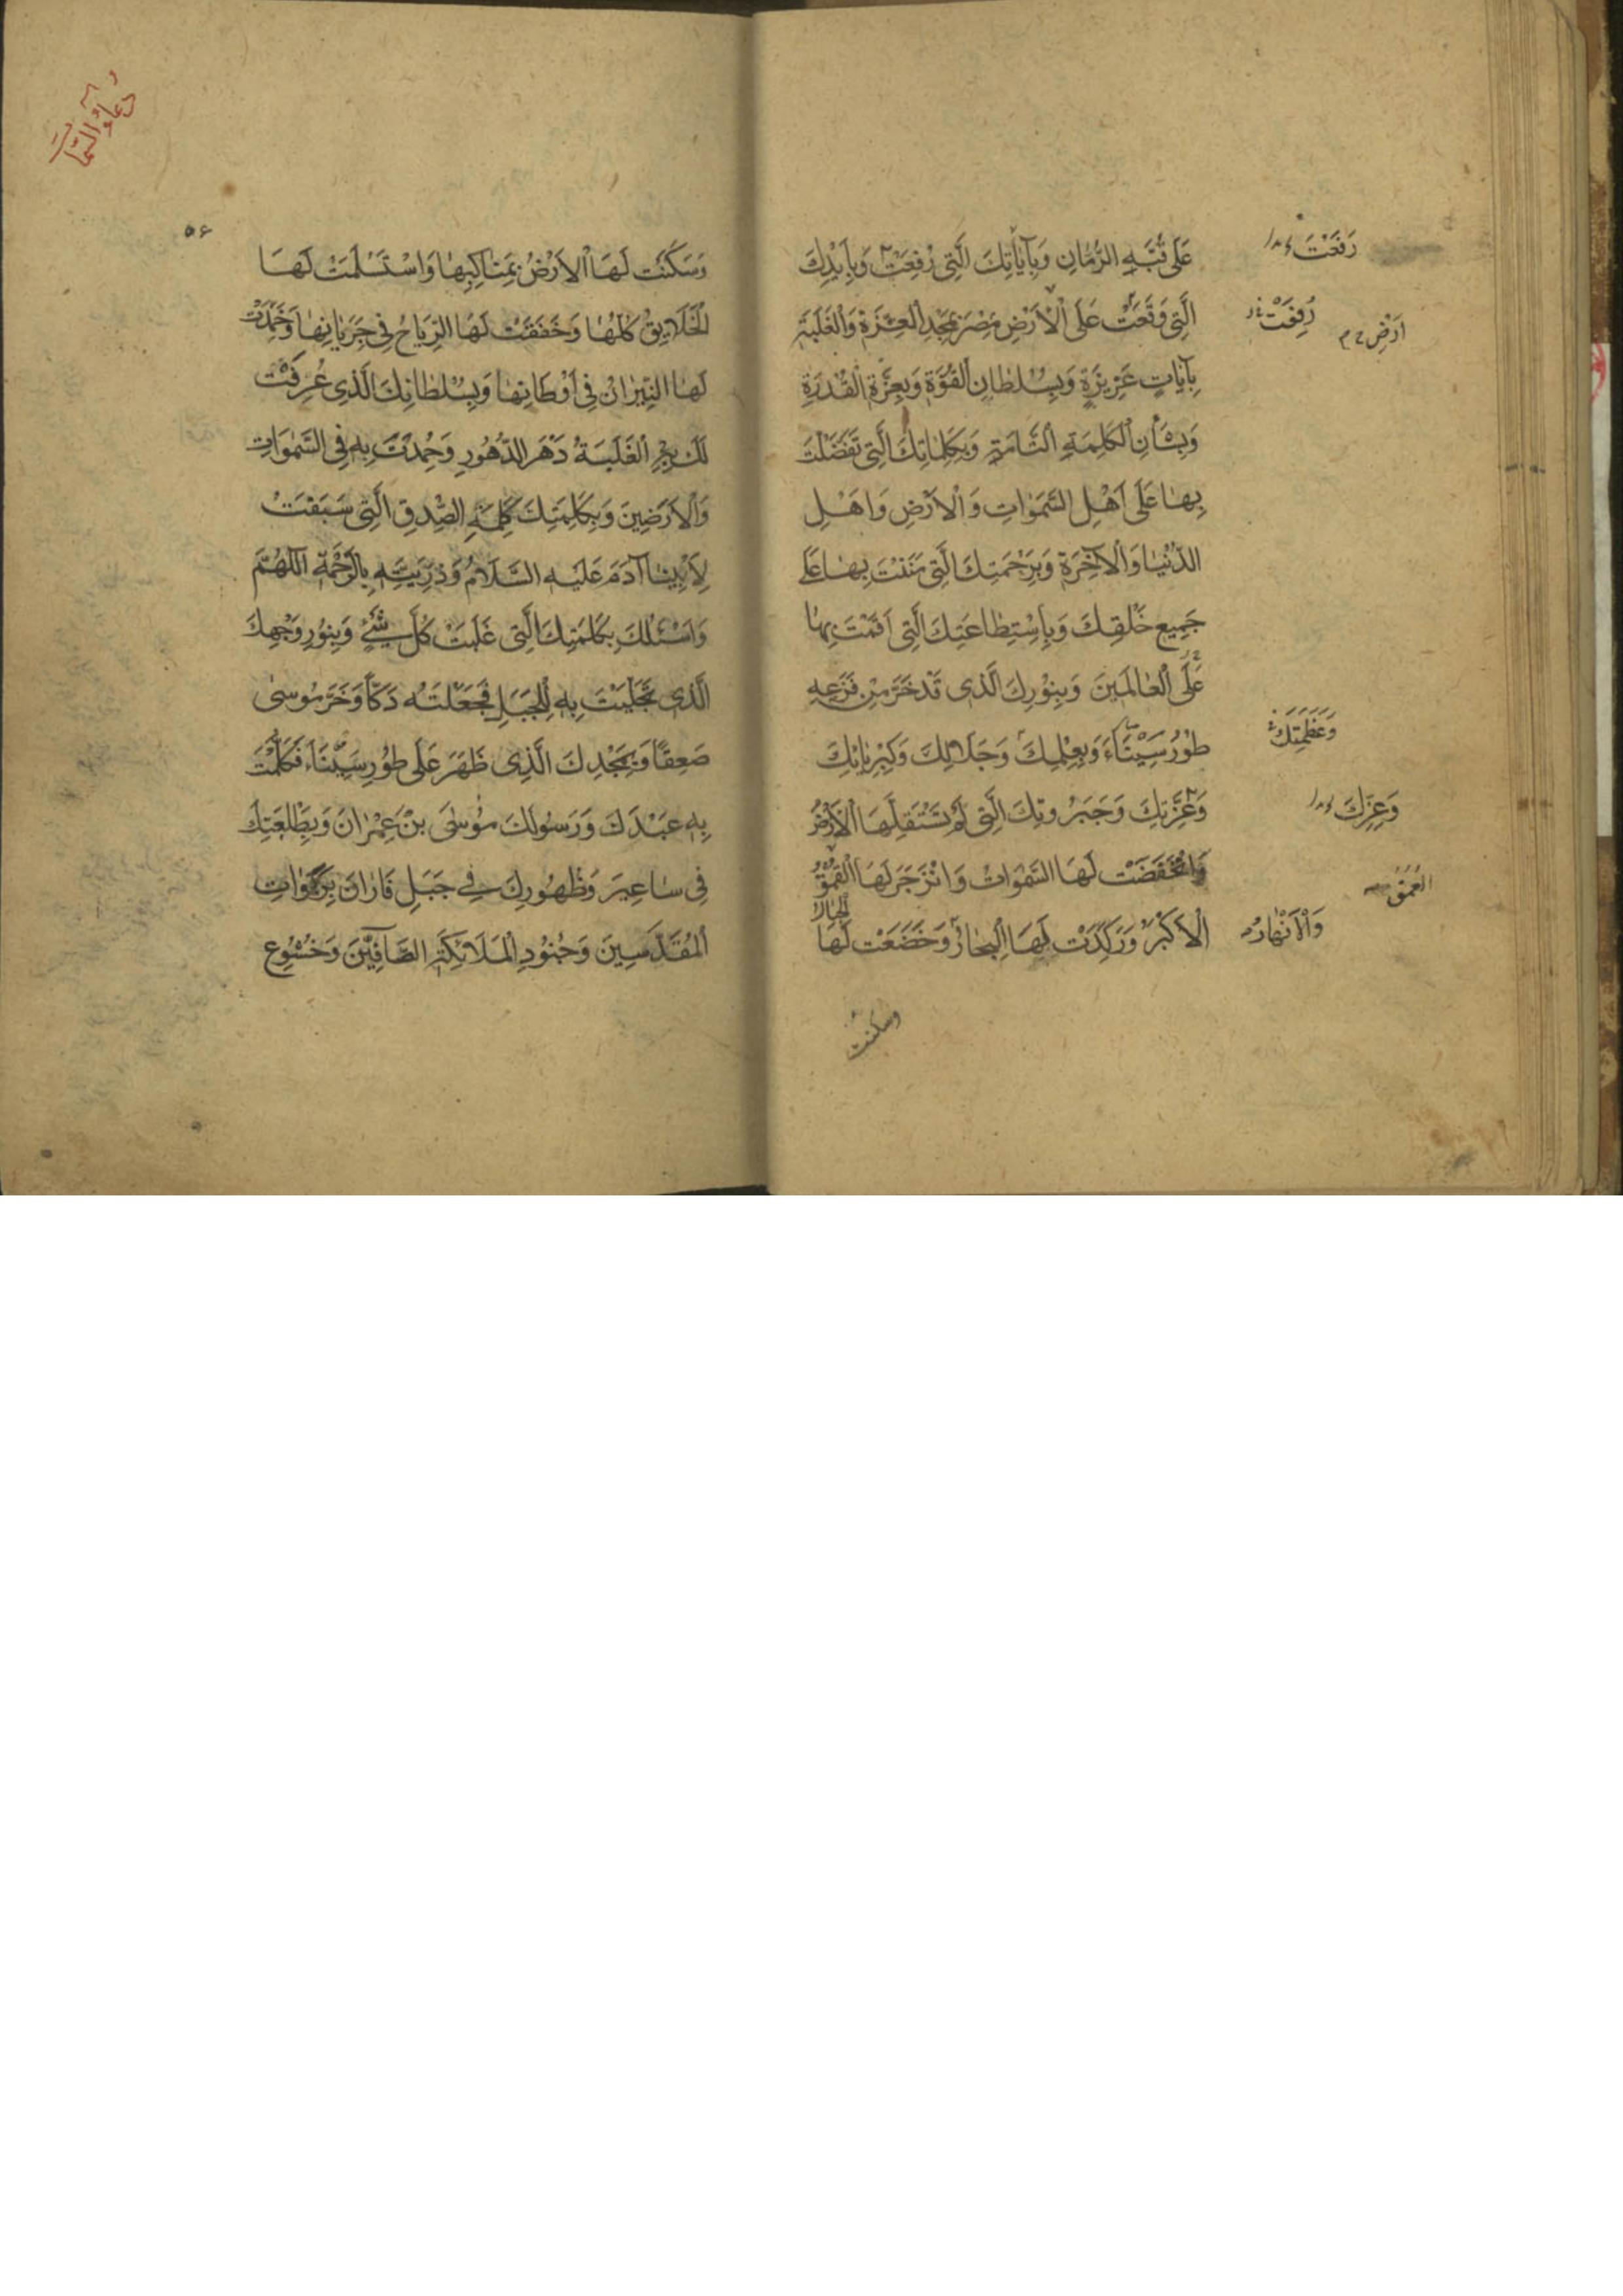 عَلَى قُبَّةِ الرُّمَّانِ وَبِآيَاتِكَ الَّتِي رُفِعَتْ وَبِأَيْدِكَ
الَّتِي وَقَعَتْ عَلَى الْأَرْضِ مِصْرَ بِمَجْدِ الْعِزَّةِ وَالْغَلَبَةِ
بِآيَاتٍ عَزِيزَةٍ وَبِسُلْطَانِ الْقُوَّةِ وَبِعِزَّةِ الْقُدْرَةِ
وَبِشَأْنِ الْكَلِمَةِ التَّامَّةِ وَبِكَلِمَاتِكَ الَّتِي تَفَضَّلْتَ
بِهَا عَلَى أَهْلِ السَّمَوَاتِ وَالْأَرْضِ وَأَهْلِ
الدُّنْيَا وَالْآخِرَةِ وَبِرَحْمَتِكَ الَّتِي مَنَنْتَ بِهَا عَلَى
جَمِيعِ خَلْقِكَ وَبِاسْتِطَاعَتِكَ الَّتِي أَقَمْتَ بِهَا
عَلَى الْعَالَمِينَ وَبِنُورِكَ الَّذِي قَدْ خَرَّ مِنْ فَزَعِهِ
طُورُ سَيْنَاءَ وَبِعِلْمِكَ وَجَلَالِكَ وَكِبْرِيَائِكَ
وَعِزَّتِكَ وَجَبَرُوتِكَ الَّتِي لَمْ تَسْتَقِلَّهَا الْأَرْضُ
وَانْخَفَضَتْ لَهَا السَّمَوَاتُ وَانْزَجَرَ لَهَا الْعُمْقُ
الْأَكْبَرُ وَرَكَدَتْ لَهَا الْبِحَارُ وَخَضَعَتْ لَهَا
الْجِبَالُ
وسكنت
رَفَعْتَ
رُفِعَتْ
أَرْضِ
وَعَظَمَتِكَ
وَعِزِّكَ
الْعُمْقُ
وَالْأَنْهَارُ
دُعَاءُ السِّمَاتِ
۵۶
وَسَكَنَتْ لَهَا الْأَرْضُ بِمَنَاكِبِهَا وَاسْتَسْلَمَتْ لَهَا
الْخَلَايِقُ كُلُّهَا وَخَفَقَتْ لَهَا الرِّيَاحُ فِي جَرَيَانِهَا وَخَمَدَتْ
لَهَا النِّيرَانُ فِي أَوْطَانِهَا وَبِسُلْطَانِكَ الَّذِي عُرِفَتْ
لَكَ بِهِ الْغَلَبَةُ دَهْرَ الدُّهُورِ وَحُمِدْتَ بِهِ فِي السَّمَوَاتِ
وَالْأَرَضِينَ وَبِكَلِمَتِكَ كَلِمَةِ الصِّدْقِ الَّتِي سَبَقَتْ
لِأَبِينَا آدَمَ عَلَيْهِ السَّلَامُ وَذُرِّيَّتِهِ بِالرَّحْمَةِ اللَّهُمَّ
وَأَسْئَلُكَ بِكَلِمَتِكَ الَّتِي غَلَبَتْ كُلَّ شَيْءٍ وَبِنُورِ وَجْهِكَ
الَّذِي تَجَلَّيْتَ بِهِ لِلْجَبَلِ فَجَعَلْتَهُ دَكًّا وَخَرَّ مُوسَى
صَعِقًا وَبِمَجْدِكَ الَّذِي ظَهَرَ عَلَى طُورِ سَيْنَاءَ فَكَلَّمْتَ
بِهِ عَبْدَكَ وَرَسُولَكَ مُوسَى بْنَ عِمْرَانَ وَبِطَلْعَتِكَ
فِي سَاعِيرَ وَظُهُورِكَ فِي جَبَلِ فَارَانَ بِرَبَوَاتِ
الْمُقَدَّسِينَ وَجُنُودِ الْمَلَائِكَةِ الصَّافِّينَ وَخُشُوعِ